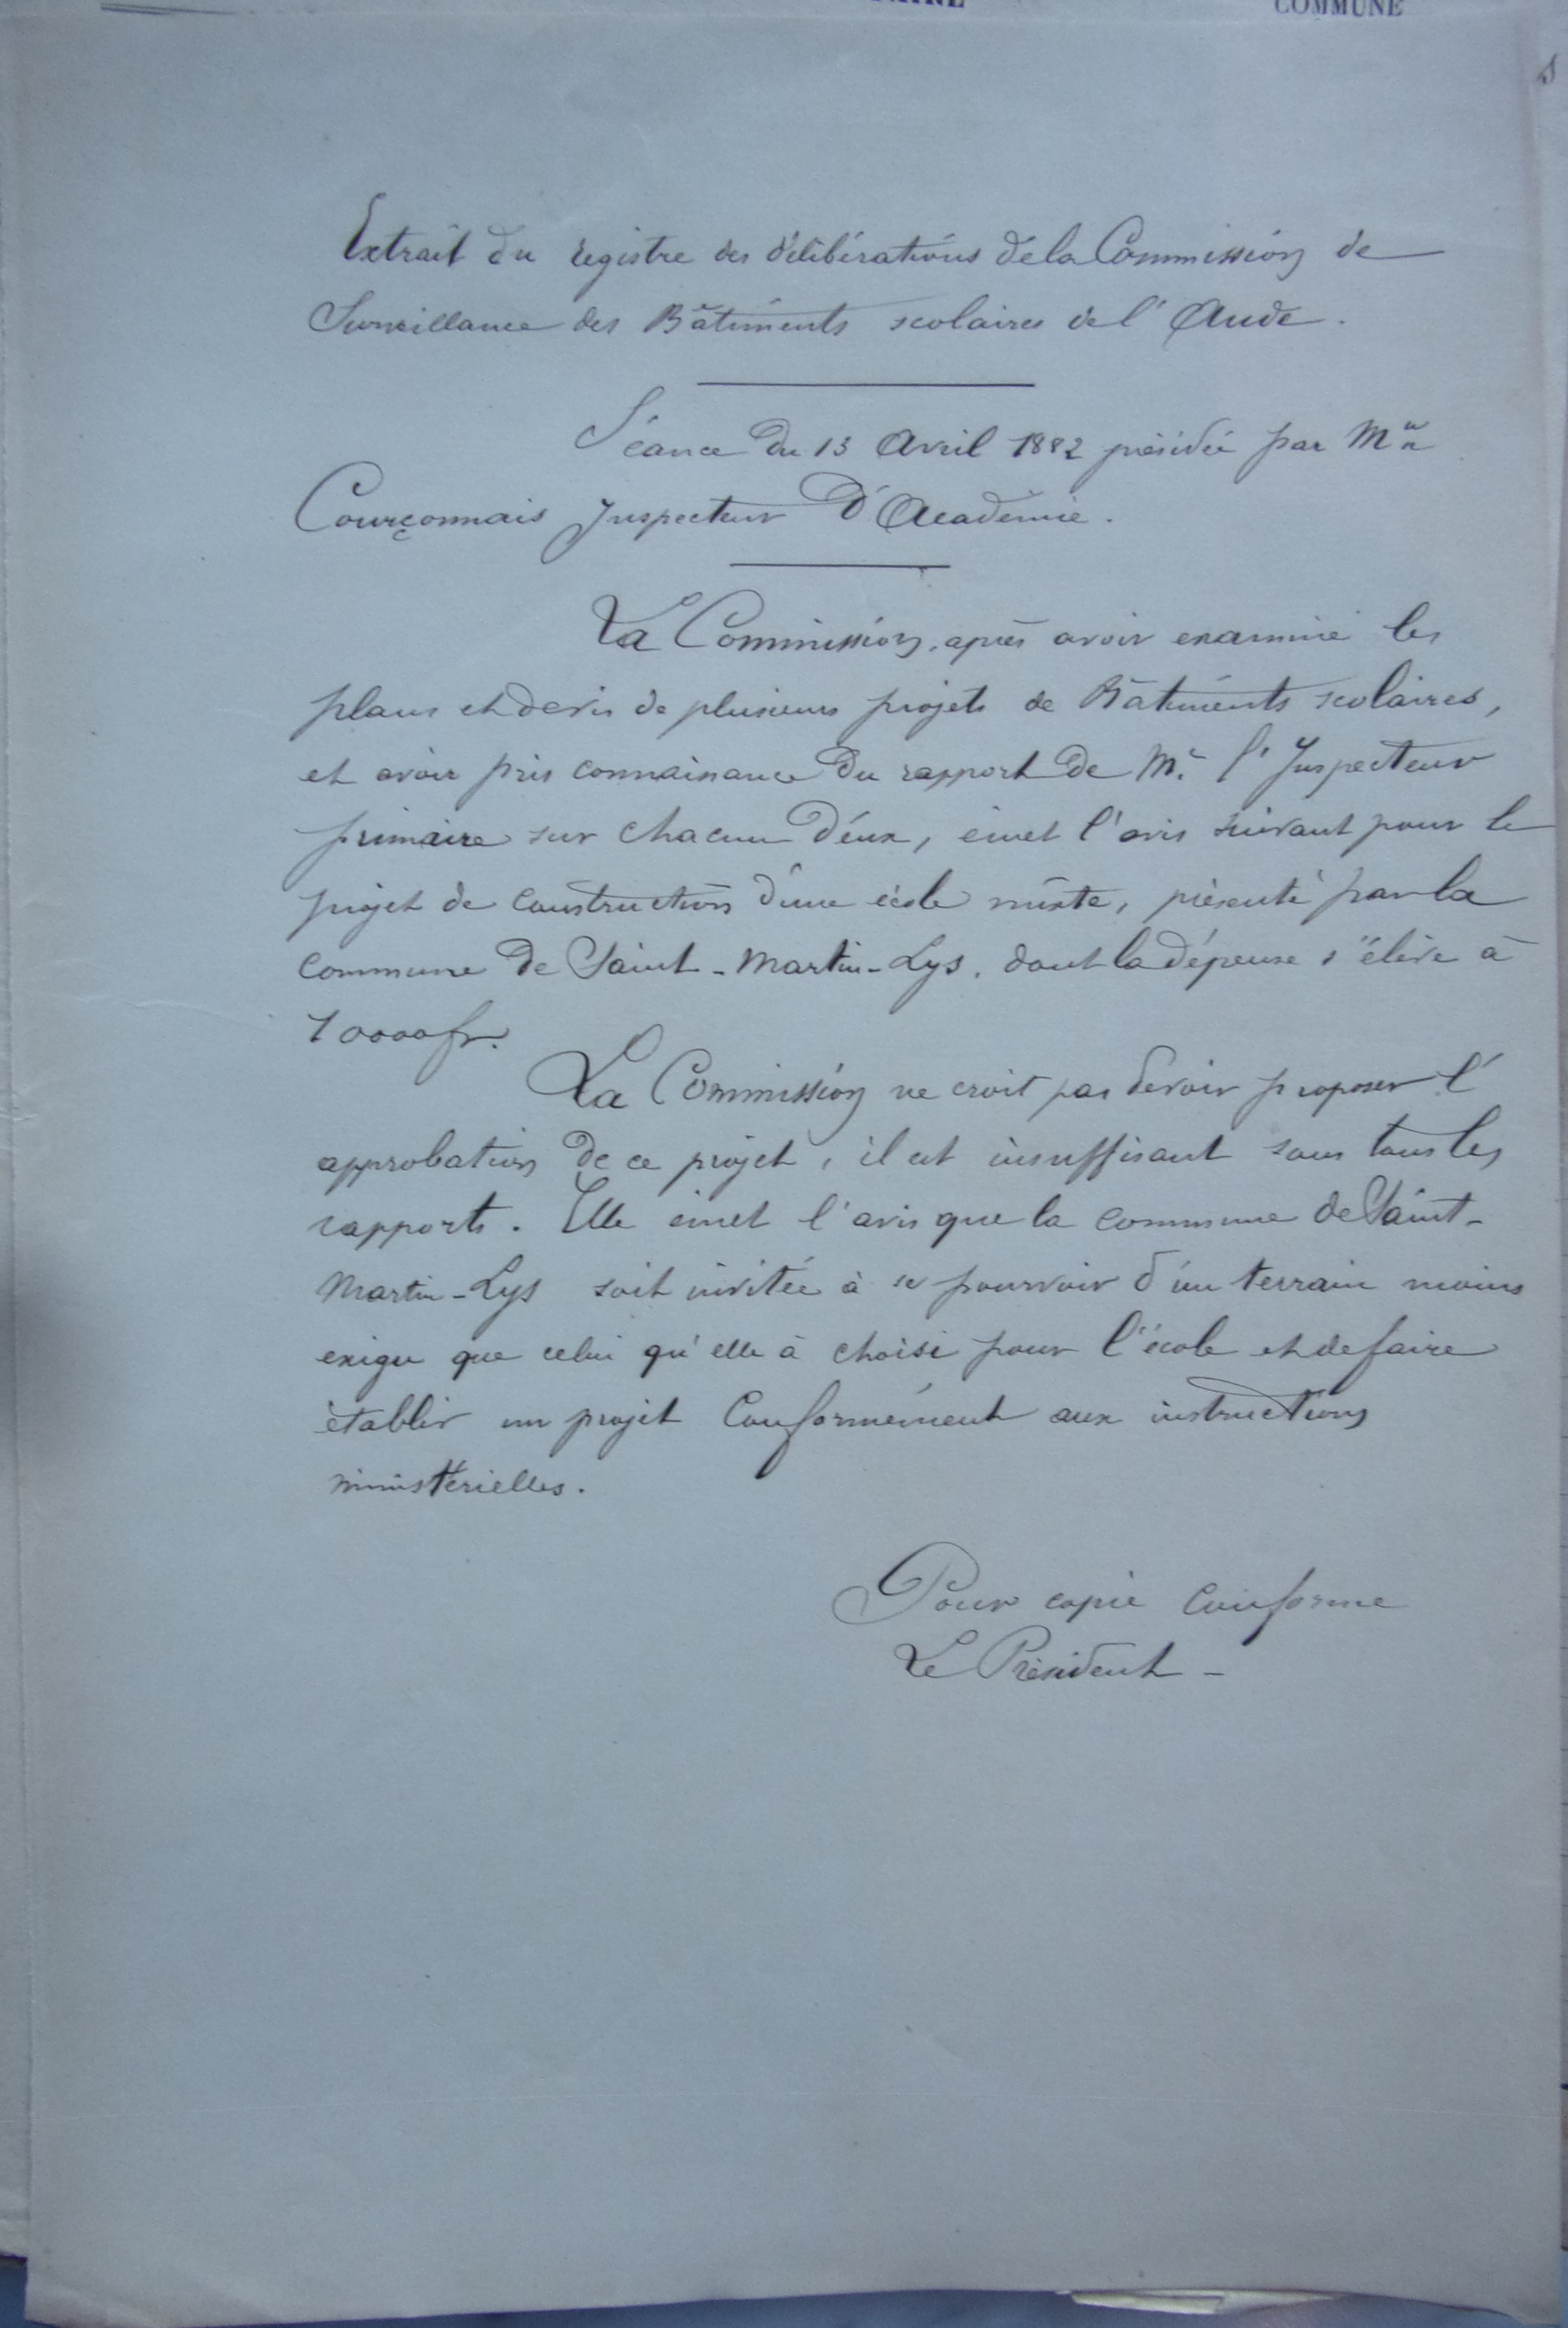 COMMUNE
Extrait du registre des délibérations de la Commission de
Surveillance des Bâtiments scolaires de l'Aude.
Séance du 13 Avril 1882 présidée par Mr
Courçonnais Inspecteur d'Académie.
La Commission, après avoir examiné les
plans et devis de plusieurs projets de Bâtiments scolaires,
et avoir pris connaissance du rapport de Mr l'Inspecteur
primaire sur chacun d'eux, émet l'avis suivant pour le
projet de construction d'une école mixte, présenté par la
commune de Saint-Martin-Lys, dont la dépense s'élève à
10000 fr.
La Commission ne croit pas devoir proposer l'
approbation de ce projet, il est insuffisant sous tous les
rapports. Elle émet l'avis que la commune de Saint-
Martin-Lys soit invitée à se pourvoir d'un terrain moins
exigu que celui qu'elle à choisi pour l'école et de faire
établir un projet Conformément aux instructions
ministérielles.
Pour copie conforme
Le Président -